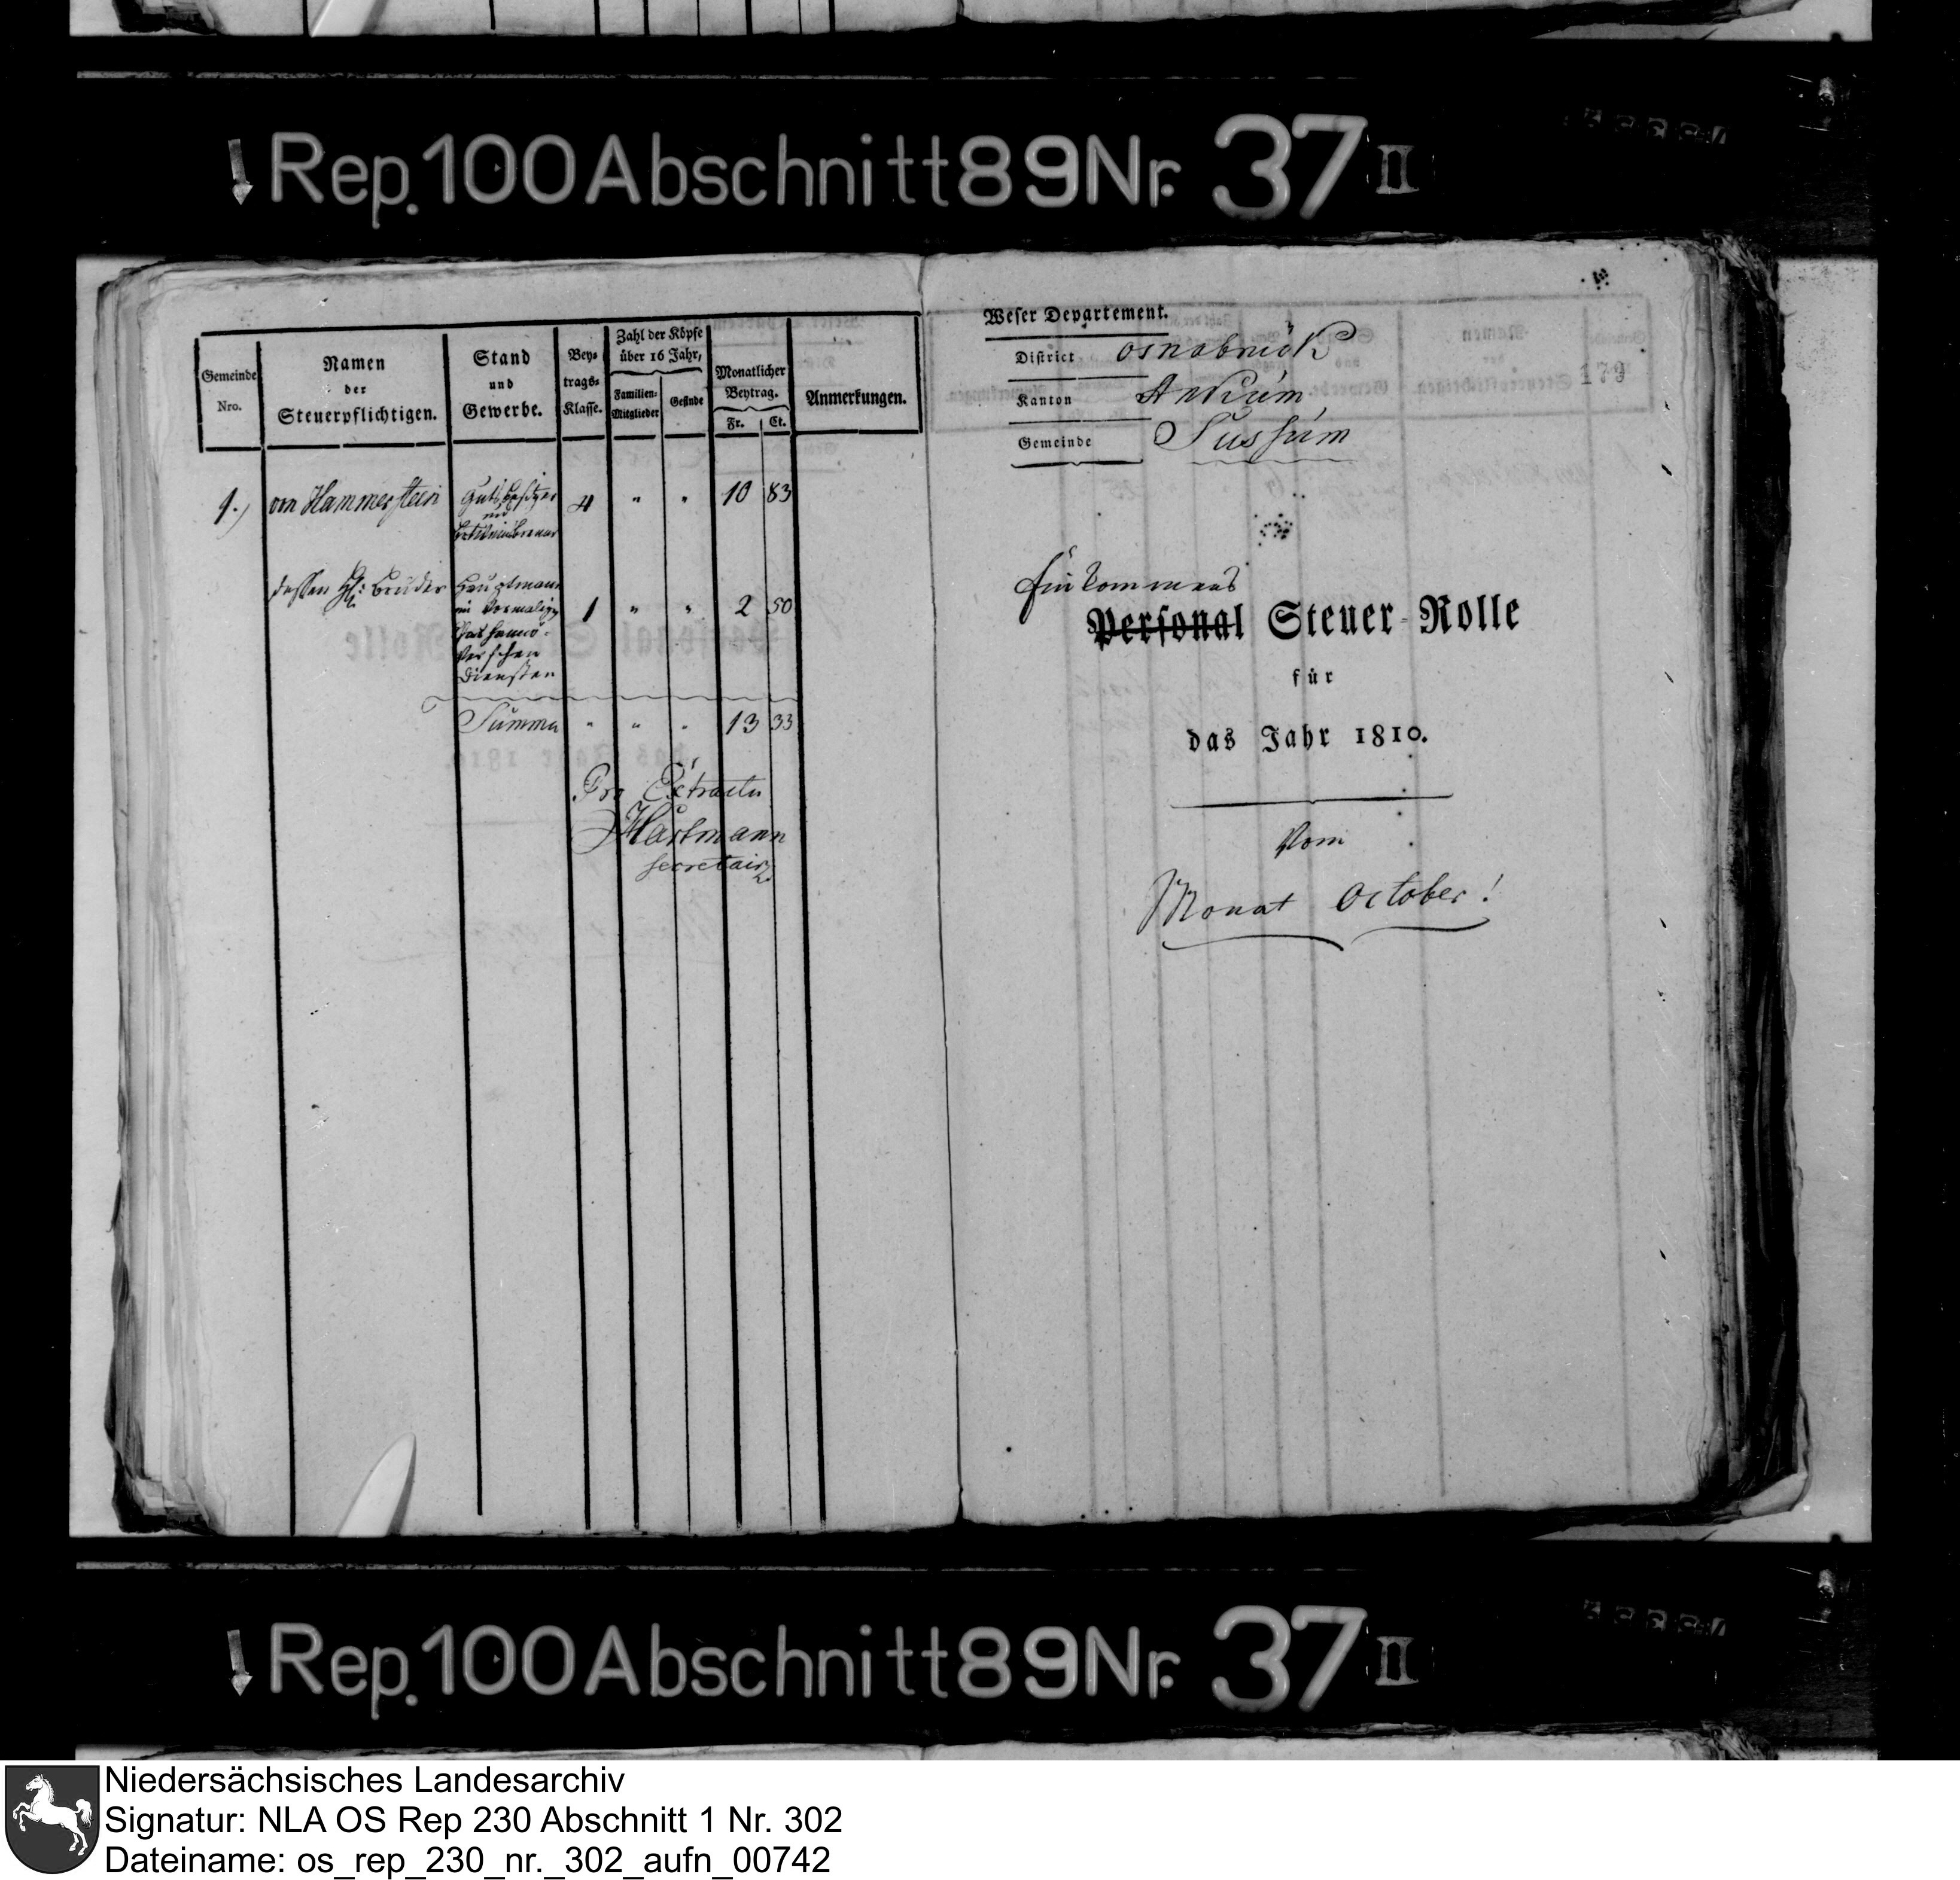 Rep. 100 Abschnitt 89 Nr. 37 II
Gemeinde Nro.
Namen der Steuerpflichtigen.
Stand und Gewerbe.
Beytrags-Klasse.
Zahl der Köpfe über 16 Jahr,
Familien-Mitglieder
Gesinde
Monatlicher Beytrag.
Fr. Ct.
Anmerkungen.
1.) von Hammerstein Gutsbesitzer 4 " " 10 83
und
dessen H: Bruder Hauptmann
in vormalign 1 " " 2 50
Churhannö-
verschen
Diensten
Summa " " " 13 33
Pro Extractu
Hartmann
secretair
Weser Departement.
179
District Osnabrück
Kanton Ankum
Gemeinde Sussum
Einkommens
Personal Steuer-Rolle
für
das Jahr 1810.
Vom
Monat October!
Rep. 100 Abschnitt 89 Nr. 37 II
Niedersächsisches Landesarchiv
Signatur: NLA OS Rep 230 Abschnitt 1 Nr. 302
Dateiname: os_rep_230_nr._302_aufn_00742